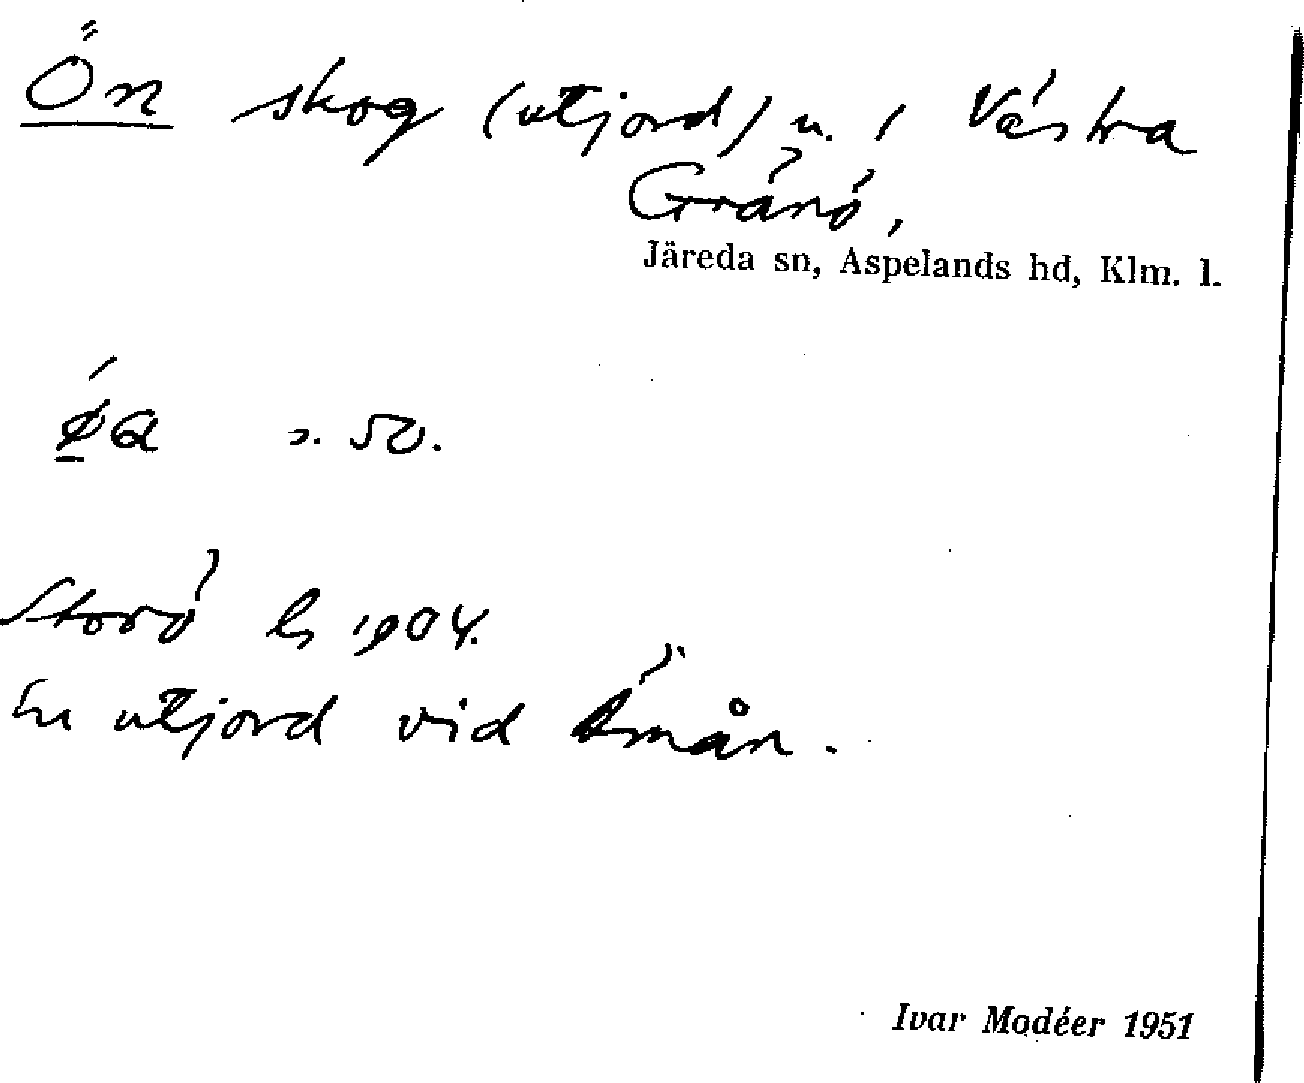 Ön skog (utjord) u. Västra
Gränö,
Järeda sn, Aspelands hd, Klm. l.
s. 50.
Storö 1904.
En utjord vid Emån.
Ivar Modéer 1951